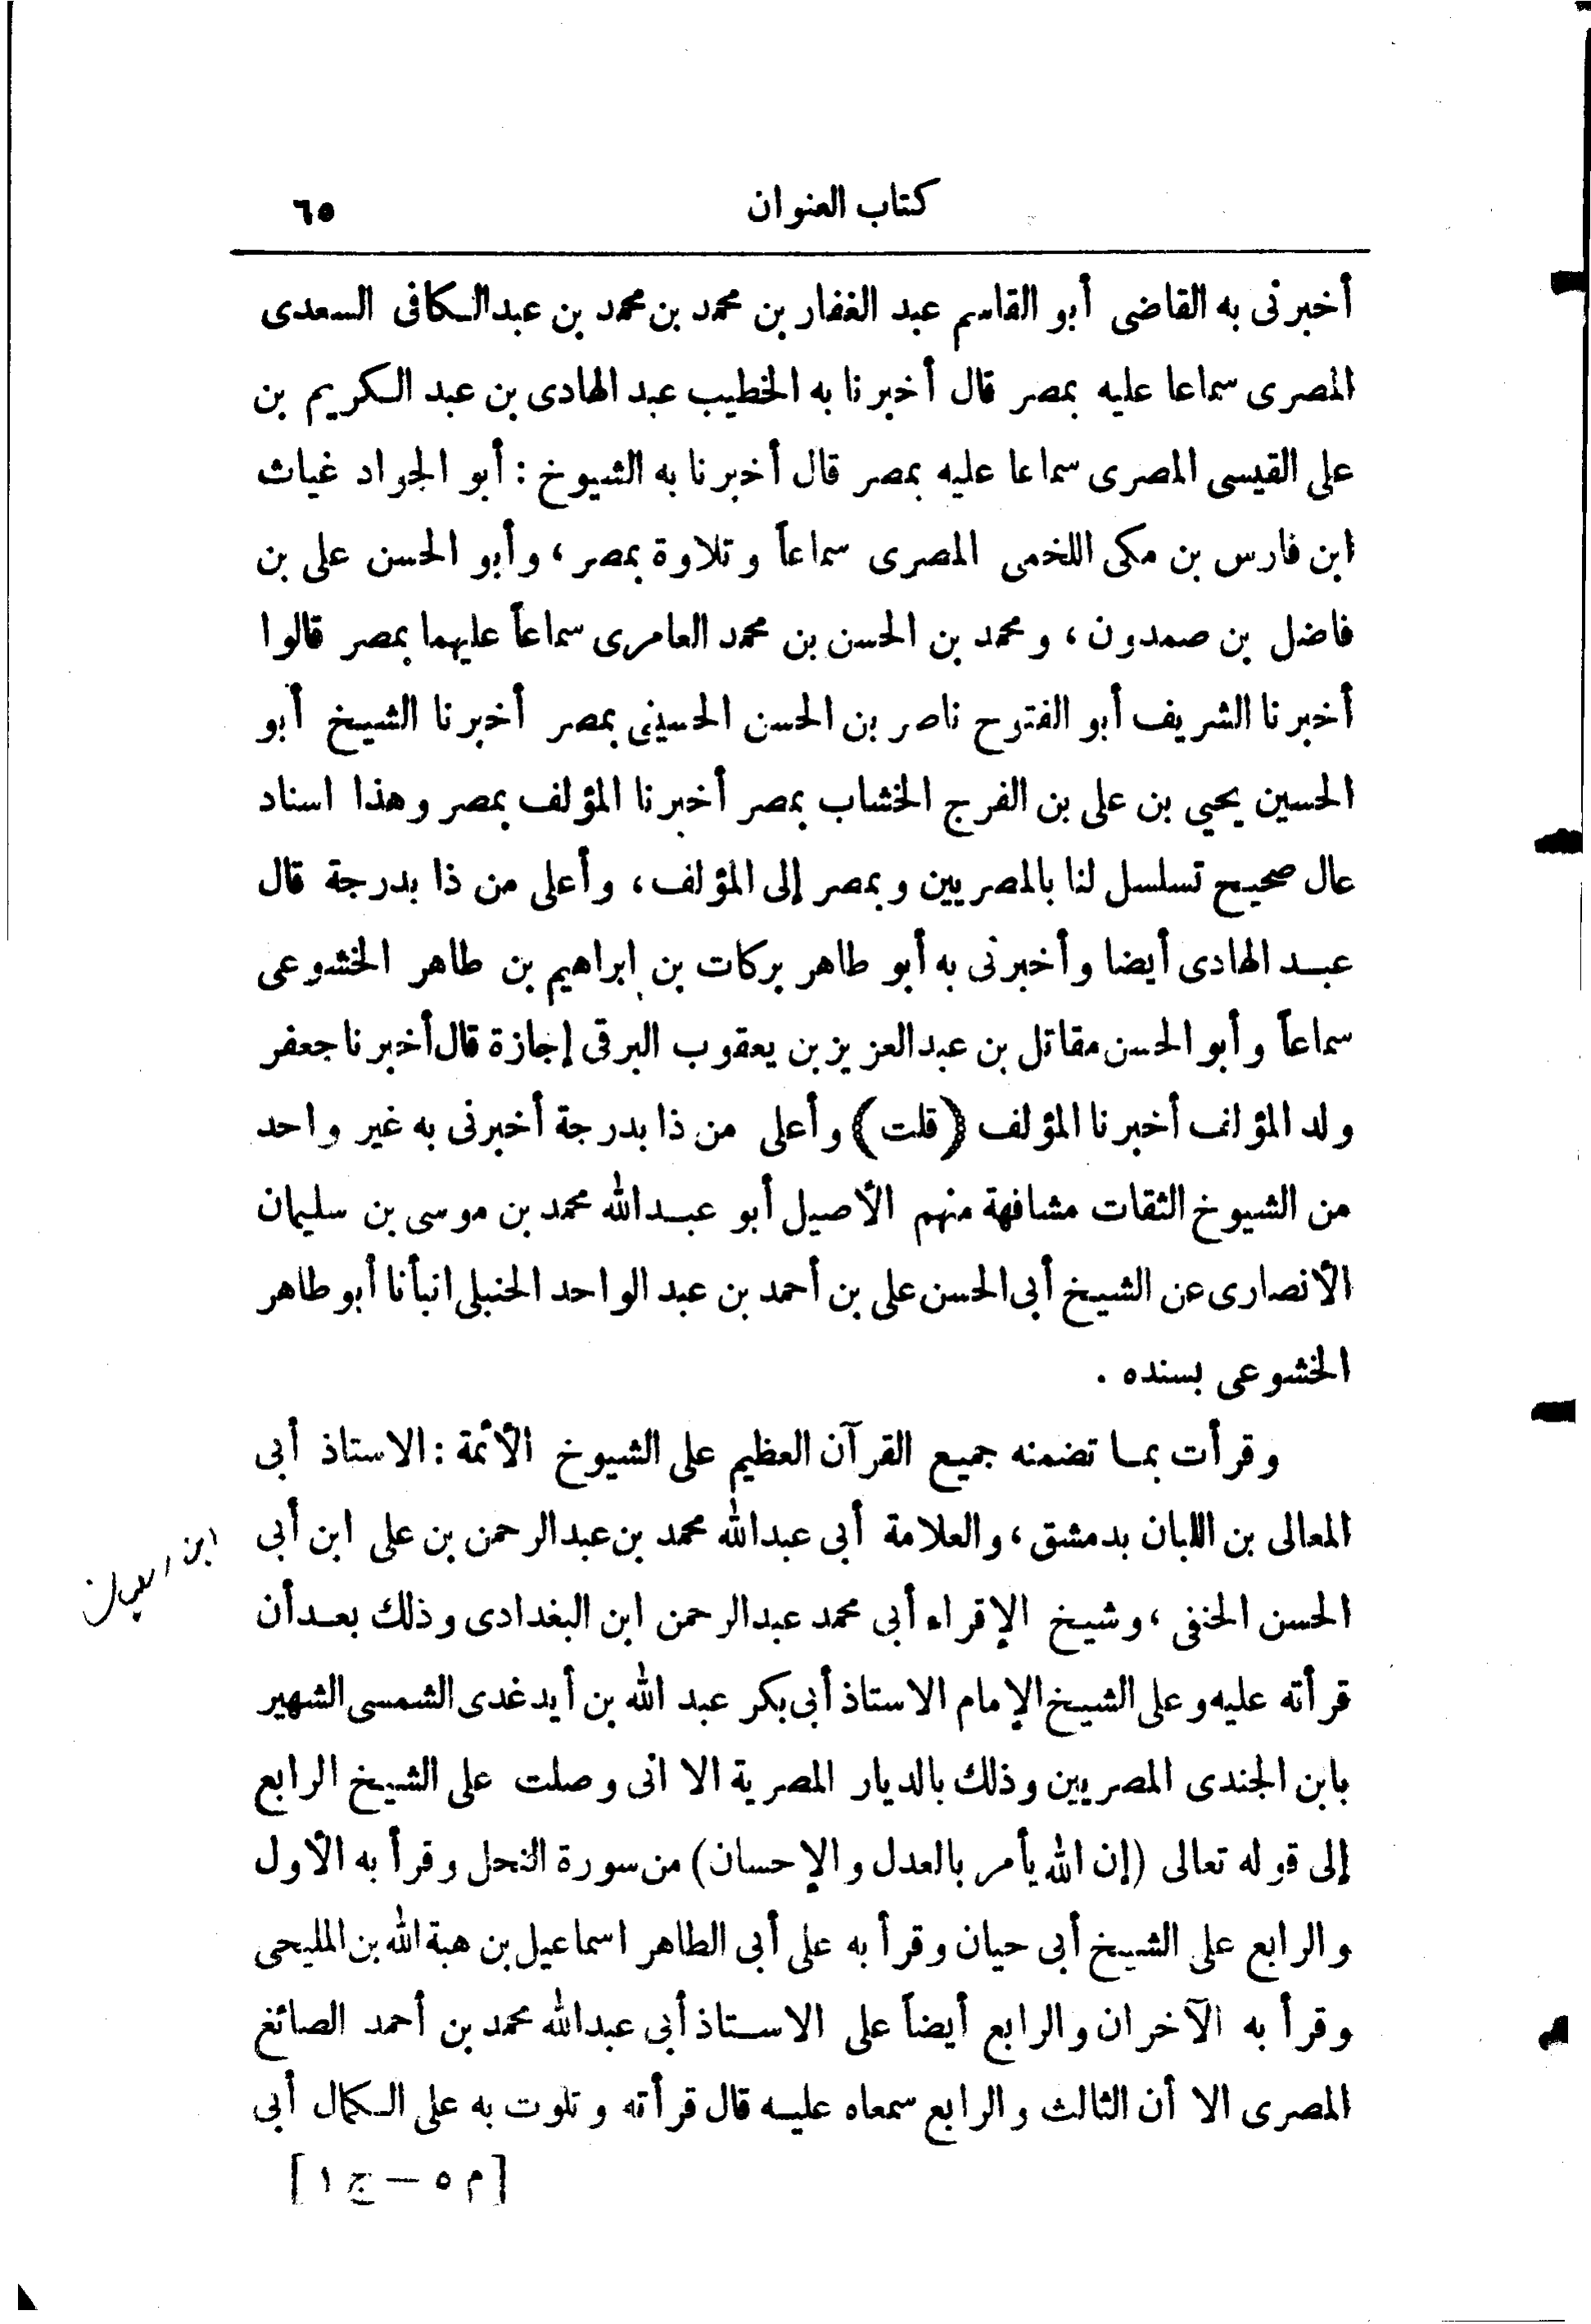 كتاب العنوان ٦٥
أخبرنى به القاضى أبو القاسم عبد الغفار بن محمد بن محمد بن عبد الكافى السعدى
المصرى سماعا عليه بمصر قال أخبرنا به الخطيب عبد الهادى بن عبد الكريم بن
على القيسى المصرى سماعا عليه بمصر قال أخبرنا به الشيوخ : أبو الجواد غياث
ابن فارس بن مكى اللخمى المصرى سماعاً وتلاوة بمصر ، وأبو الحسن على بن
فاضل بن صمدون ، ومحمد بن الحسن بن محمد العامرى سماعاً عليهما بمصر قالوا
أخبرنا الشريف أبو الفتوح ناصر بن الحسن الحسينى بمصر أخبرنا الشيخ أبو
الحسين يحيى بن على بن الفرج الخشاب بمصر أخبرنا المؤلف بمصر وهذا اسناد
عال صحيح تسلسل لنا بالمصريين وبمصر إلى المؤلف ، وأعلى من ذا بدرجة قال
عبد الهادى أيضا وأخبرنى به أبو طاهر بركات بن إبراهيم بن طاهر الخشوعى
سماعاً وأبو الحسن مقاتل بن عبد العزيز بن يعقوب البرقى إجازة قال أخبرنا جعفر
ولد المؤلف أخبرنا المؤلف (قلت) وأعلى من ذا بدرجة أخبرنى به غير واحد
من الشيوخ الثقات مشافهة منهم الأصيل أبو عبد الله محمد بن موسى بن سليمان
الأنصارى عن الشيخ أبى الحسن على بن أحمد بن عبد الواحد الحنبلى انبأنا أبو طاهر
الخشوعى بسنده .
وقرأت بما تضمنه جميع القرآن العظيم على الشيوخ الأئمة : الاستاذ أبى
المعالى بن اللبان بدمشق ، والعلامة أبى عبد الله محمد بن عبد الرحمن بن على ابن أبى
الحسن الحنفى ، وشيخ الإقراء أبى محمد عبد الرحمن ابن البغدادى وذلك بعد أن
قرأته عليه وعلى الشيخ الإمام الاستاذ أبى بكر عبد الله بن أيدغدى الشمسى الشهير
بابن الجندى المصريين وذلك بالديار المصرية الا انى وصلت على الشيخ الرابع
إلى قوله تعالى (إن الله يأمر بالعدل والإحسان) من سورة النحل وقرأ به الأول
والرابع على الشيخ أبى حيان وقرأ به على أبى الطاهر اسماعيل بن هبة الله بن المليحى
وقرأ به الآخران والرابع أيضاً على الاستاذ أبى عبد الله محمد بن أحمد الصائغ
المصرى الا أن الثالث والرابع سمعاه عليه قال قرأته وتلوت به على الكمال أبى
[م ٥ – ج ١]
ابن